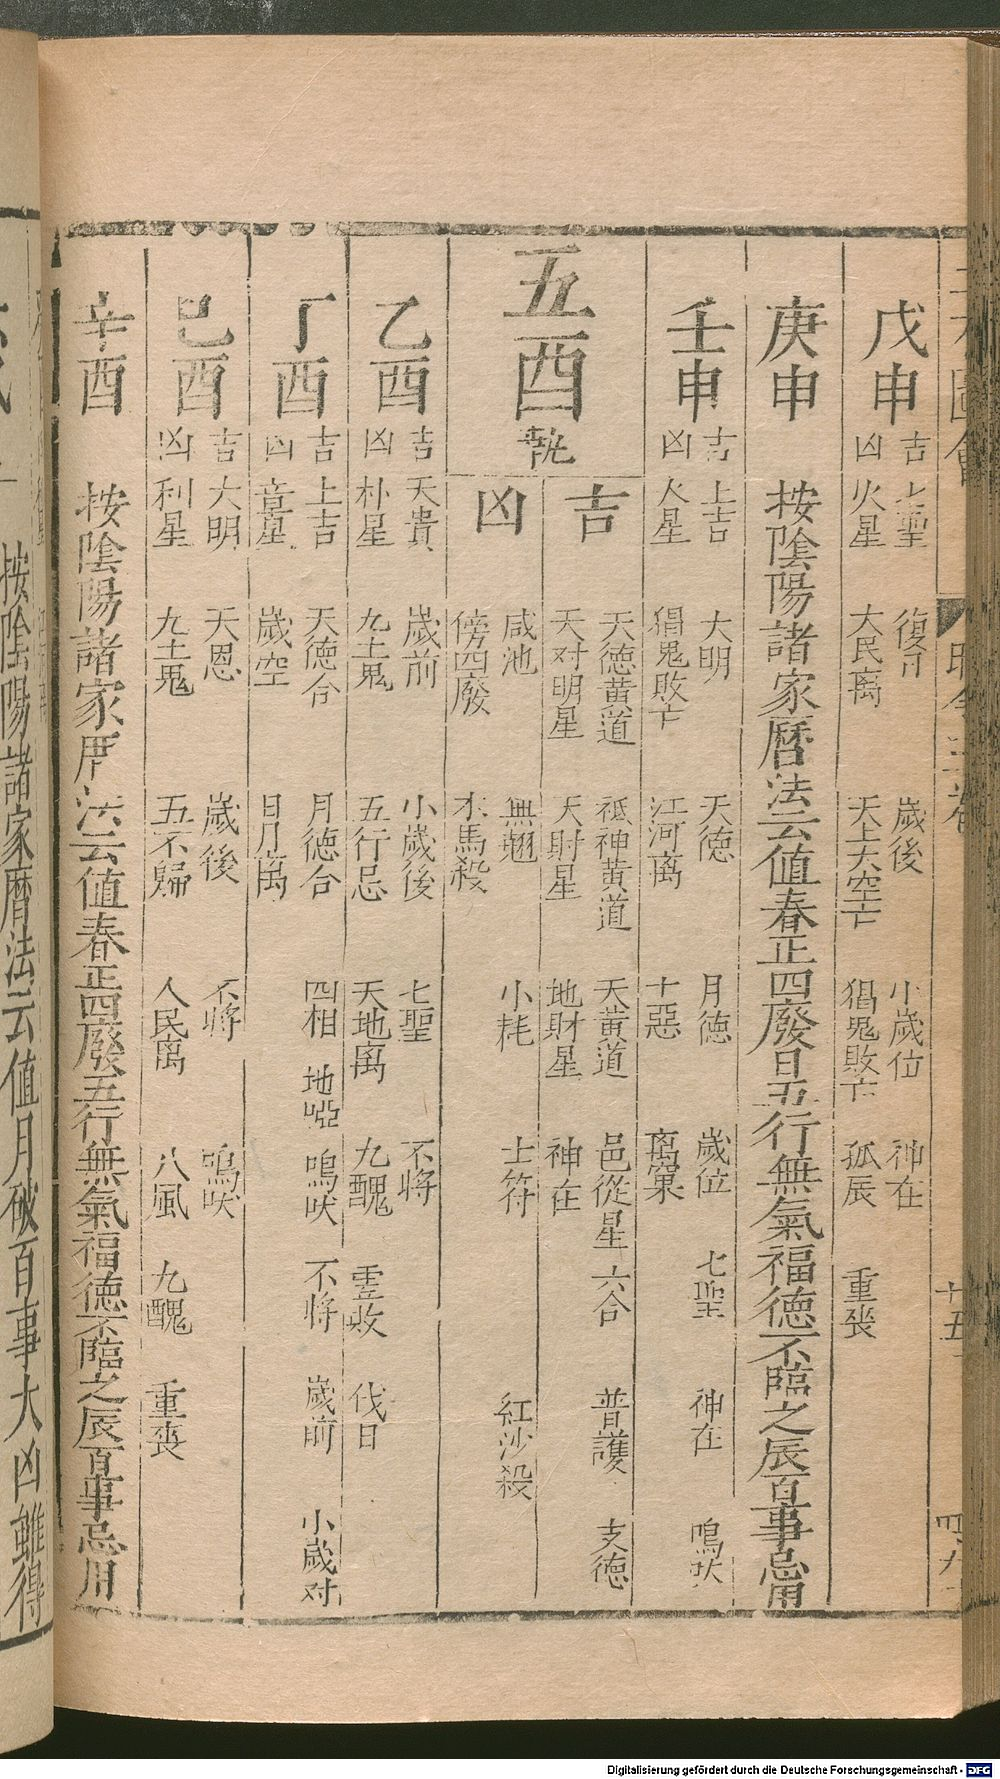 戊申
吉 七聖 復日 歲後 小歲位 神在
凶 火星 大民离 天上大空亡 猖鬼敗亡 孤辰 重喪
庚申 按陰陽諸家曆法云值春正四廢日五行無氣福德不臨之辰百事忌用
壬申
吉 上吉 大明 天德 月德 歲位 七聖 神在 鳴吠
凶 火星 猖鬼敗亡 江河离 十惡 离窠
五酉
吉 天德黃道 祗神黃道 天黃道 邑從星 六合 普護 支德
天对明星 天財星 地財星 神在
凶 咸池 無翹 小耗 士符 紅沙殺
傍四廢 木馬殺
乙酉
吉 天貴 歲前 小歲後 七聖 不將
凶 朴星 九土鬼 五行忌 天地离 九醜 伐日
丁酉
吉 上吉 天德合 月德合 四相 地啞 鳴吠 不將 歲前 小歲对
凶 章星 歲空 日月离
己酉
吉 大明 天恩 歲後 不將 鳴吠
凶 利星 九土鬼 五不歸 人民离 八風 九醜 重喪
辛酉 按陰陽諸家曆法云值春正四廢五行無氣福德不臨之辰百事忌用
按陰陽諸家曆法云值月破百事大凶雖得
Digitalisierung gefördert durch die Deutsche Forschungsgemeinschaft - DFG